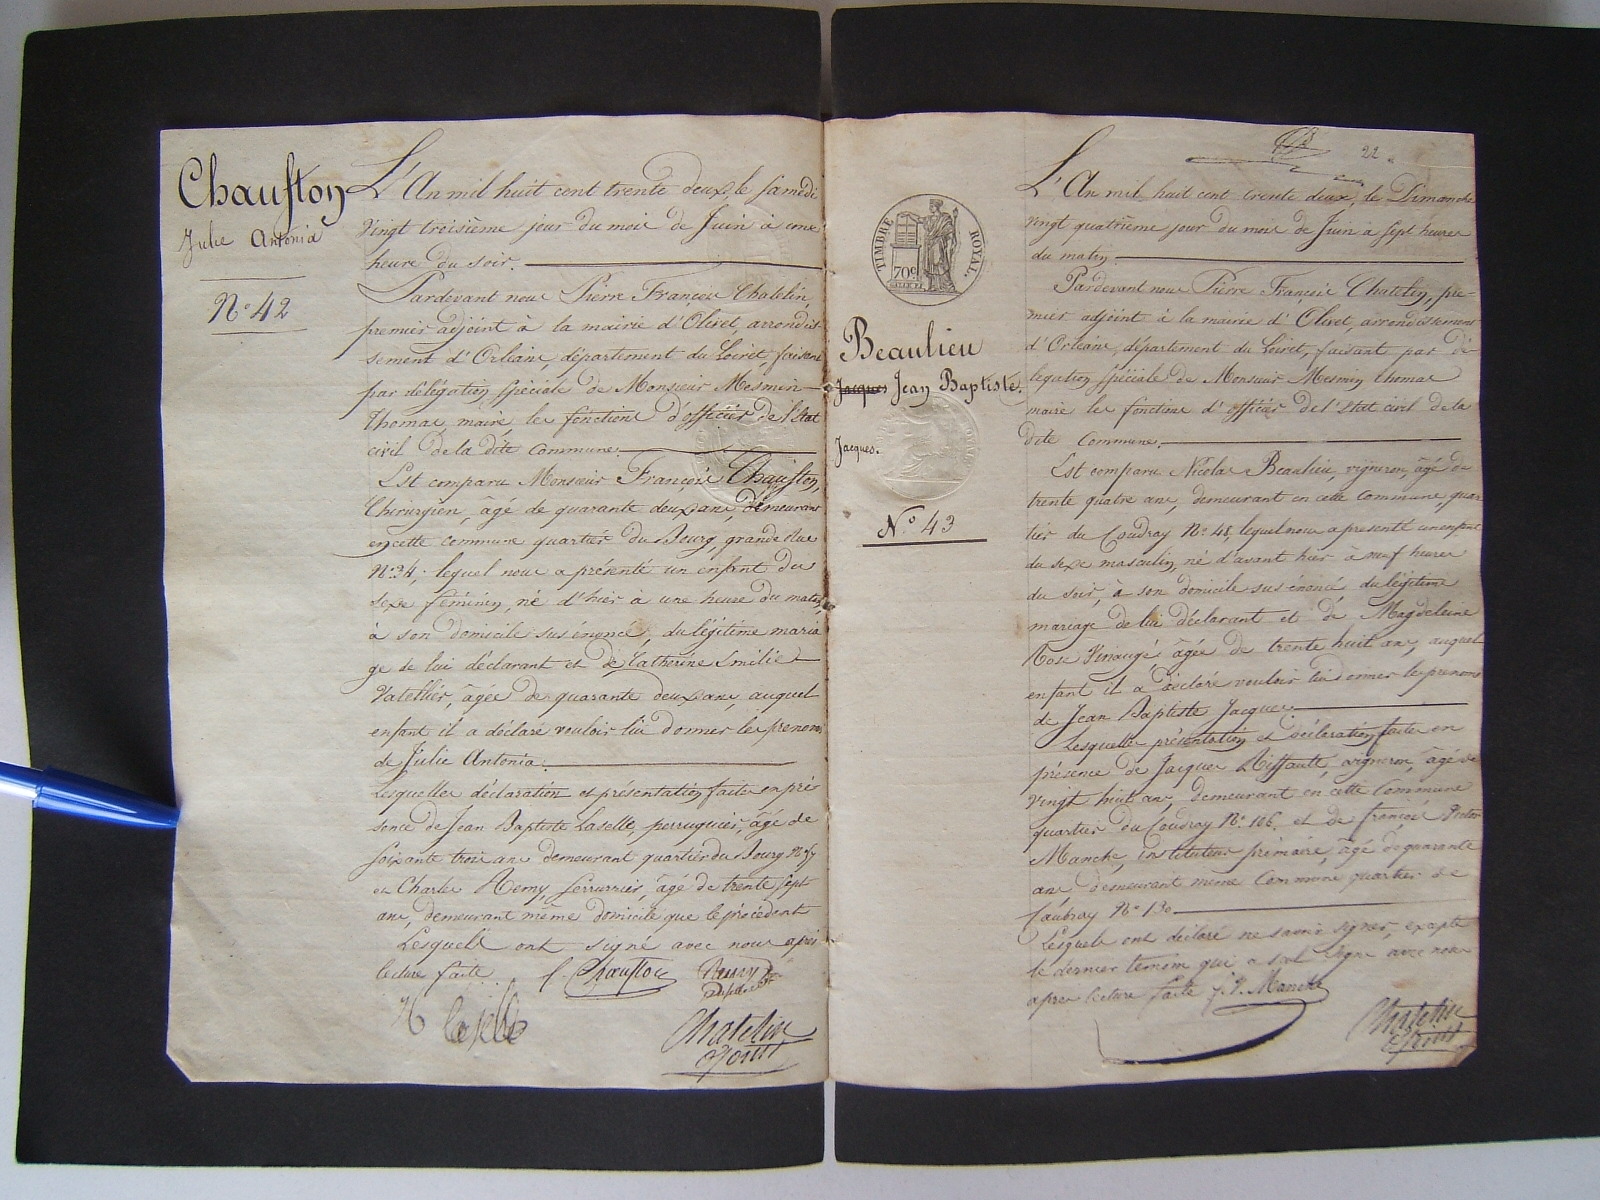 Chaufton
Julie Antonia
N° 42
L'An mil huit cent trente deux, le samedi
vingt troisième jour du mois de Juin à une
heure du soir.
Pardevant nous Pierre François Chatelin,
premier adjoint à la mairie d'Olivet, arrondis-
sement d'Orléans, département du Loiret, faisant
par délégation spéciale de Monsieur Mesmin
Thomas, maire, les fonctions d'officier de l'état
civil de la dite commune.
Est comparu Monsieur François Chaufton,
Chirurgien, âgé de quarante deux ans, demeurant
en cette commune quartier du Bourg, grande Rue
N° 24, lequel nous a présenté un enfant du
sexe féminin, né d'hier à une heure du matin,
à son domicile sus énoncé, du légitime maria
ge de lui déclarant et de Catherine Emilie
Vatellier, âgée de quarante deux ans, auquel
enfant il a déclaré vouloir lui donner les prenoms
de Julie Antonia.
Lesquelles déclaration et présentation faites en pré
sence de Jean Baptiste Laselle, perruquier, âgé de
soixante trois ans demeurant quartier du Bourg N°
et Charles Remy, serrurier, âgé de trente sept
ans, demeurant même domicile que le précédent
Lesquels ont signé avec nous après
lecture faite. f. Chaufton Remy
Laselle
Chatelin
adjoint
22
TIMBRE ROYAL
70c
Beaulieu
Jacques Jean Baptiste.
Jacques.
N° 43
L'An mil huit cent trente deux, le Dimanche
vingt quatrième jour du mois de Juin à sept heures
du matin.
Pardevant nous Pierre François Chatelin, pre-
mier adjoint à la mairie d'Olivet, arrondissement
d'Orléans, département du Loiret, faisant par dé
légation spéciale de Monsieur Mesmin Thomas
maire les fonctions d'officier de l'état civil de la
dite Commune.
Est comparu Nicolas Beaulieu, vigneron, âgé de
trente quatre ans, demeurant en cette Commune quar
tier du Coudray N° 48, lequel nous a présenté un enfant
du sexe masculin, né d'avant hier à neuf heures
du soir, à son domicile sus énoncé, du légitime
mariage de lui déclarant et de Magdeleine
Rose âgée de trente huit ans, auquel
enfant il a déclaré vouloir lui donner les prenoms
de Jean Baptiste Jacques.
Lesquelles présentation et déclaration faites en
présence de Jacques Riffault, vigneron, âgé de
vingt huit ans, demeurant en cette Commune
quartier du Coudray N° 106. et de françois Victor
Manche, instituteur primaire, âgé de quarante
ans, demeurant même Commune quartier de
Caubray N° 130
Lesquels ont déclaré ne savoir signer, excepté
le dernier témoin qui a seul signé avec nous
après lecture faite f. V. Manche
Chatelin
adjoint